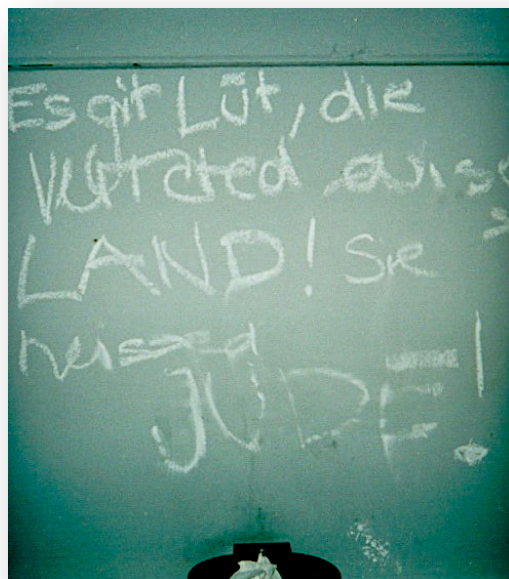 Es git Lüt, die
Verrated
LAND! Sie
heissed
JUDE!